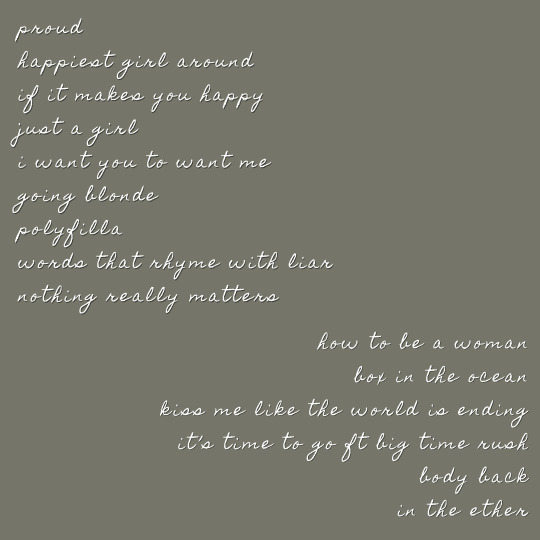 proud
happiest girl around
if it makes you happy
just a girl
i want you to want me
going blonde
polyfilla
words that rhyme with liar
nothing really matters
how to be a woman
box in the ocean
kiss me like the world is ending
it's time to go ft big time rush
body back
in the ether